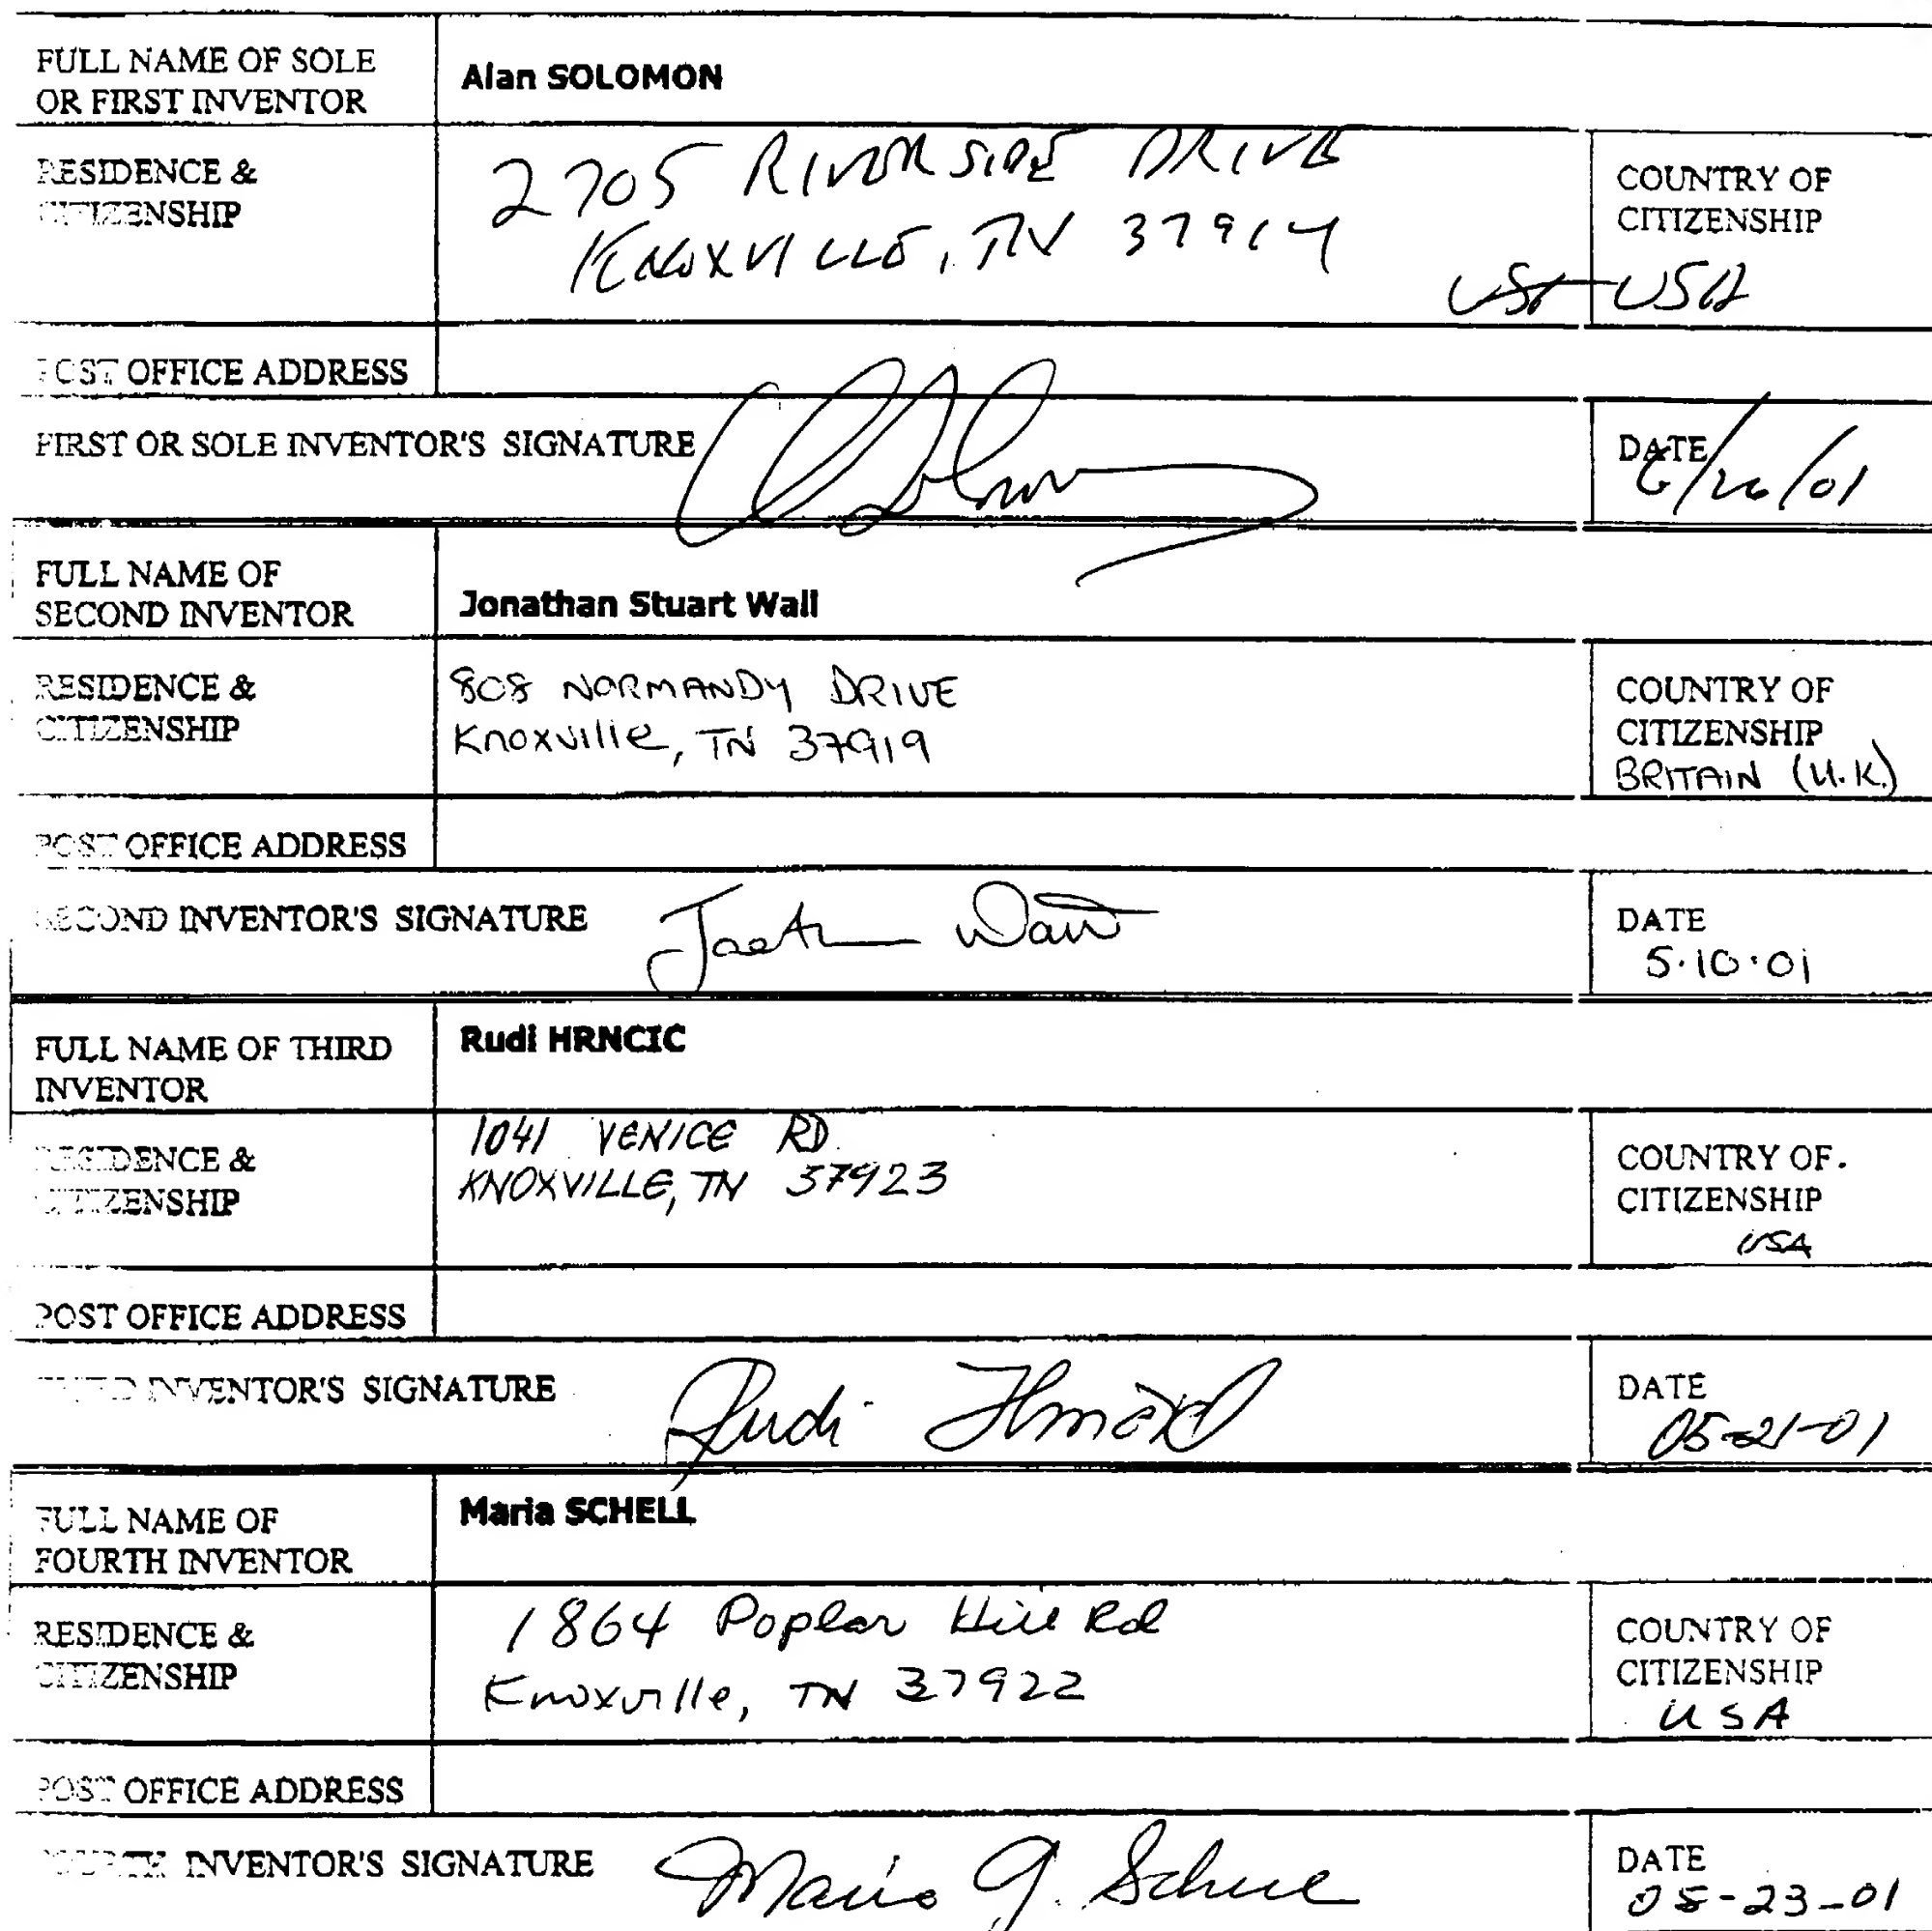 FULL NAME OF SOLE
OR FIRST INVENTOR
Alan SOLOMON
RESIDENCE &
CITIZENSHIP
2705 RIVERSIDE DRIVE
KNOXVILLE, TN 37914
USA
COUNTRY OF
CITIZENSHIP
USA
POST OFFICE ADDRESS
FIRST OR SOLE INVENTOR'S SIGNATURE
DATE
6/26/01
FULL NAME OF
SECOND INVENTOR
Jonathan Stuart Wall
RESIDENCE &
CITIZENSHIP
808 NORMANDY DRIVE
Knoxville, TN 37919
COUNTRY OF
CITIZENSHIP
BRITAIN (U.K.)
POST OFFICE ADDRESS
SECOND INVENTOR'S SIGNATURE
DATE
5.10.01
FULL NAME OF THIRD
INVENTOR
Rudi HRNCIC
RESIDENCE &
CITIZENSHIP
1041 VENICE RD.
KNOXVILLE, TN 37923
COUNTRY OF.
CITIZENSHIP
USA
POST OFFICE ADDRESS
THIRD INVENTOR'S SIGNATURE
Rudi Hrncic
DATE
05-21-01
FULL NAME OF
FOURTH INVENTOR
Maria SCHELL
RESIDENCE &
CITIZENSHIP
1864 Poplar Hill Rd
Knoxville, TN 37922
COUNTRY OF
CITIZENSHIP
USA
POST OFFICE ADDRESS
FOURTH INVENTOR'S SIGNATURE
Maria J. Schell
DATE
05-23-01